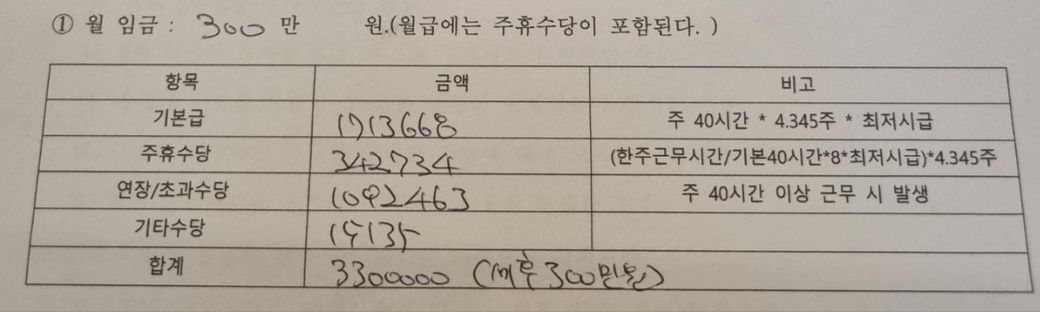 ① 월 임금 : 300 만 원.(월급에는 주휴수당이 포함된다. )
항목 금액 비고
기본급 1713668 주 40시간 * 4.345주 * 최저시급
주휴수당 342734 (한주근무시간/기본40시간*8*최저시급)*4.345주
연장/초과수당 1092463 주 40시간 이상 근무 시 발생
기타수당
합계 3300000 (세후300만원)